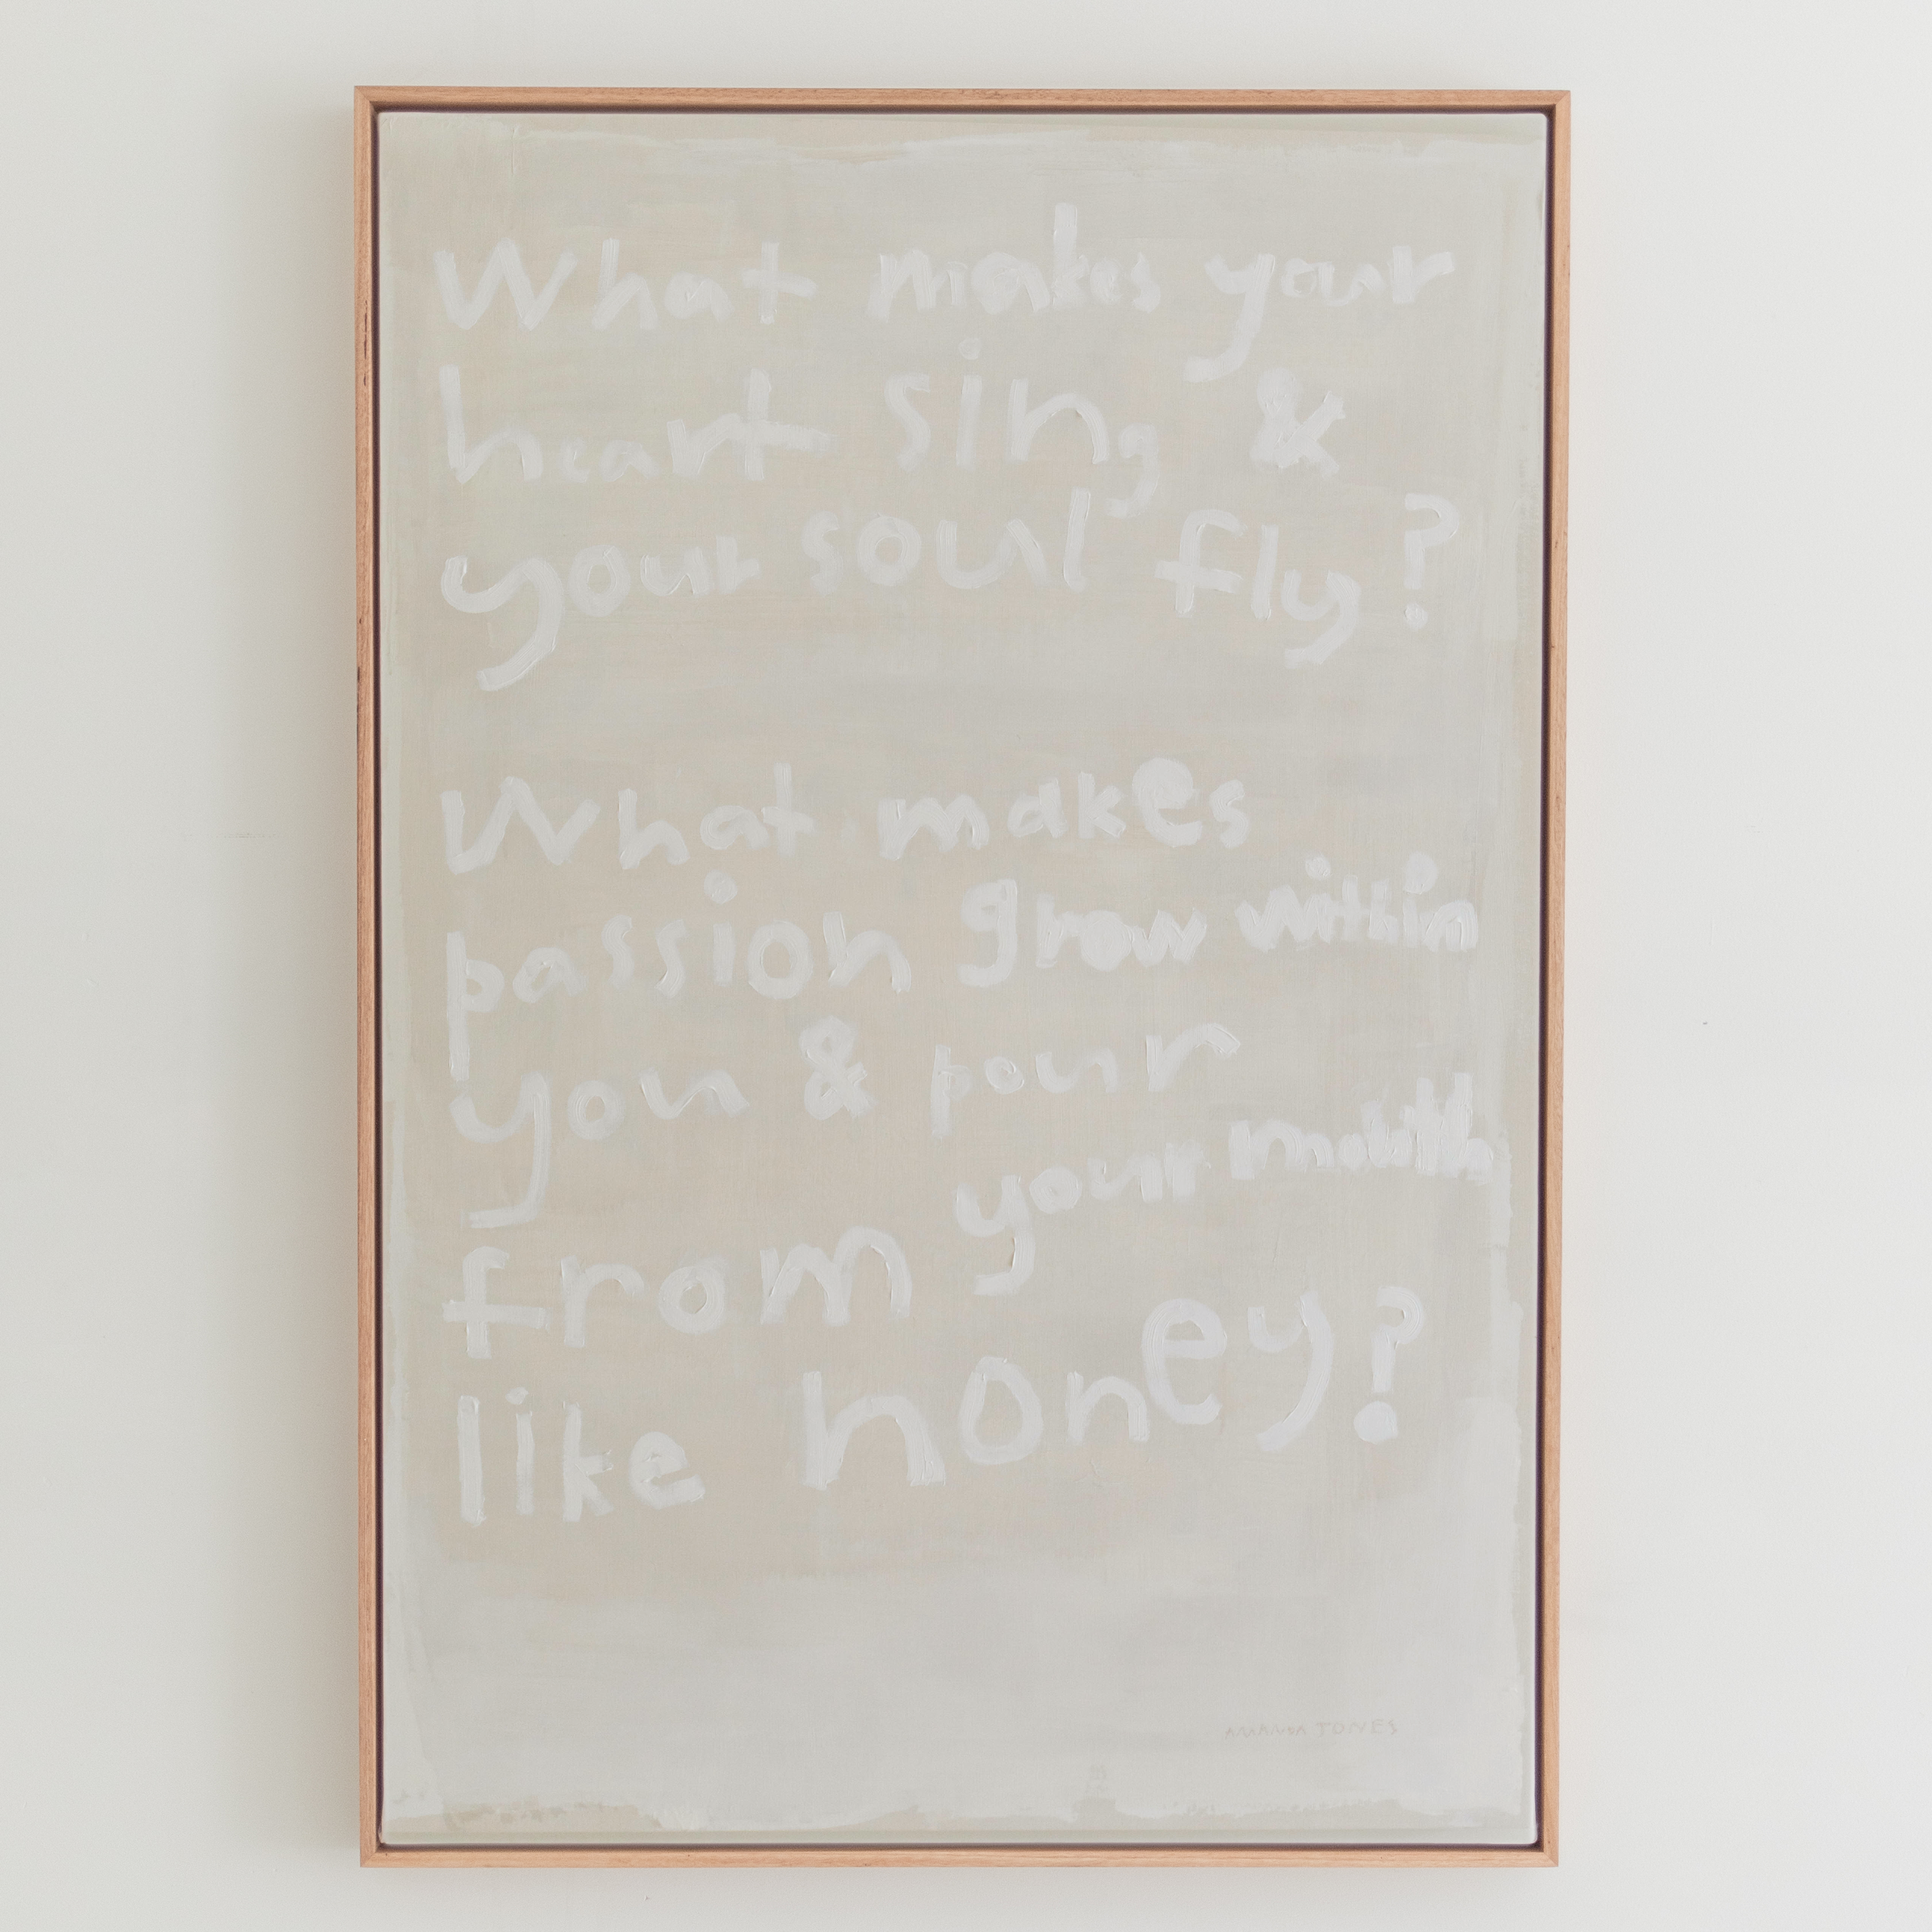 What makes your
heart sing &
your soul fly?
What makes
passion grow within
you & pour
from your mouth
like honey?
JONES